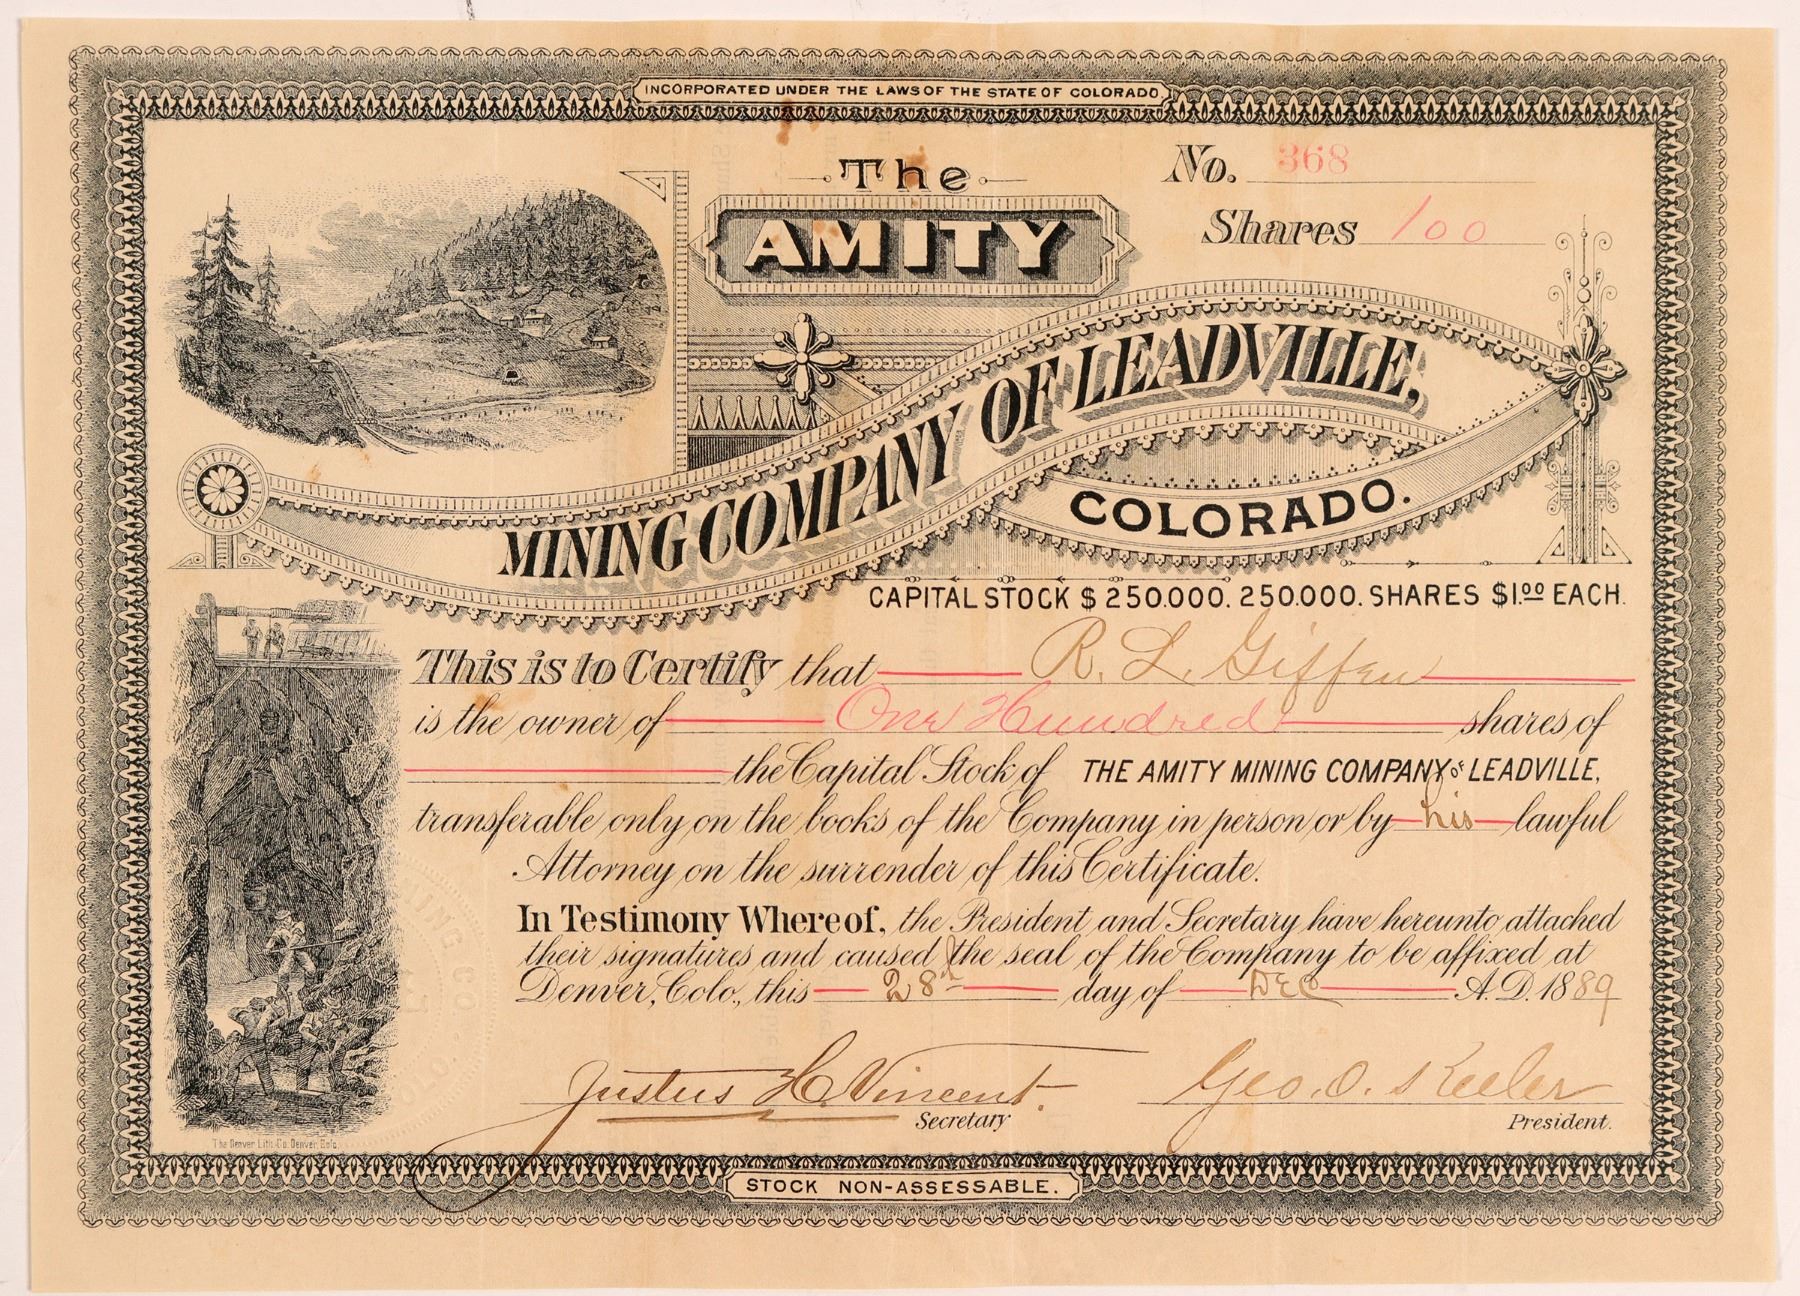 INCORPORATED UNDER THE LAWS OF THE STATE OF COLORADO
The
AMITY
No. 368
Shares 100
MINING COMPANY OF LEADVILLE,
COLORADO.
CAPITAL STOCK $250.000. 250.000. SHARES $1.00 EACH.
This is to Certify that R. L. Giffen
is the owner of One Hundred shares of
the Capital Stock of THE AMITY MINING COMPANY OF LEADVILLE,
transferable only on the books of the Company in person or by his lawful
Attorney on the surrender of this Certificate.
In Testimony Whereof, the President and Secretary have hereunto attached
their signatures and caused the seal of the Company to be affixed at
Denver, Colo., this 28th day of Dec A.D. 1889
Justus H. Vincent.
Secretary
Geo. O. Keeler
President.
The Denver Lith. Co. Denver, Colo.
STOCK NON-ASSESSABLE.